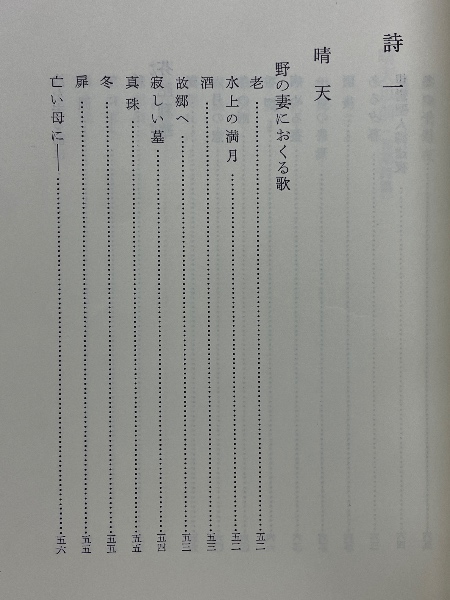 詩一
晴天
野の妻におくる歌
老……五二
水上の満月……五二
酒……五三
故郷へ……五三
寂しい墓……五四
真珠……五五
冬……五五
扉……五五
亡い母に――……五六